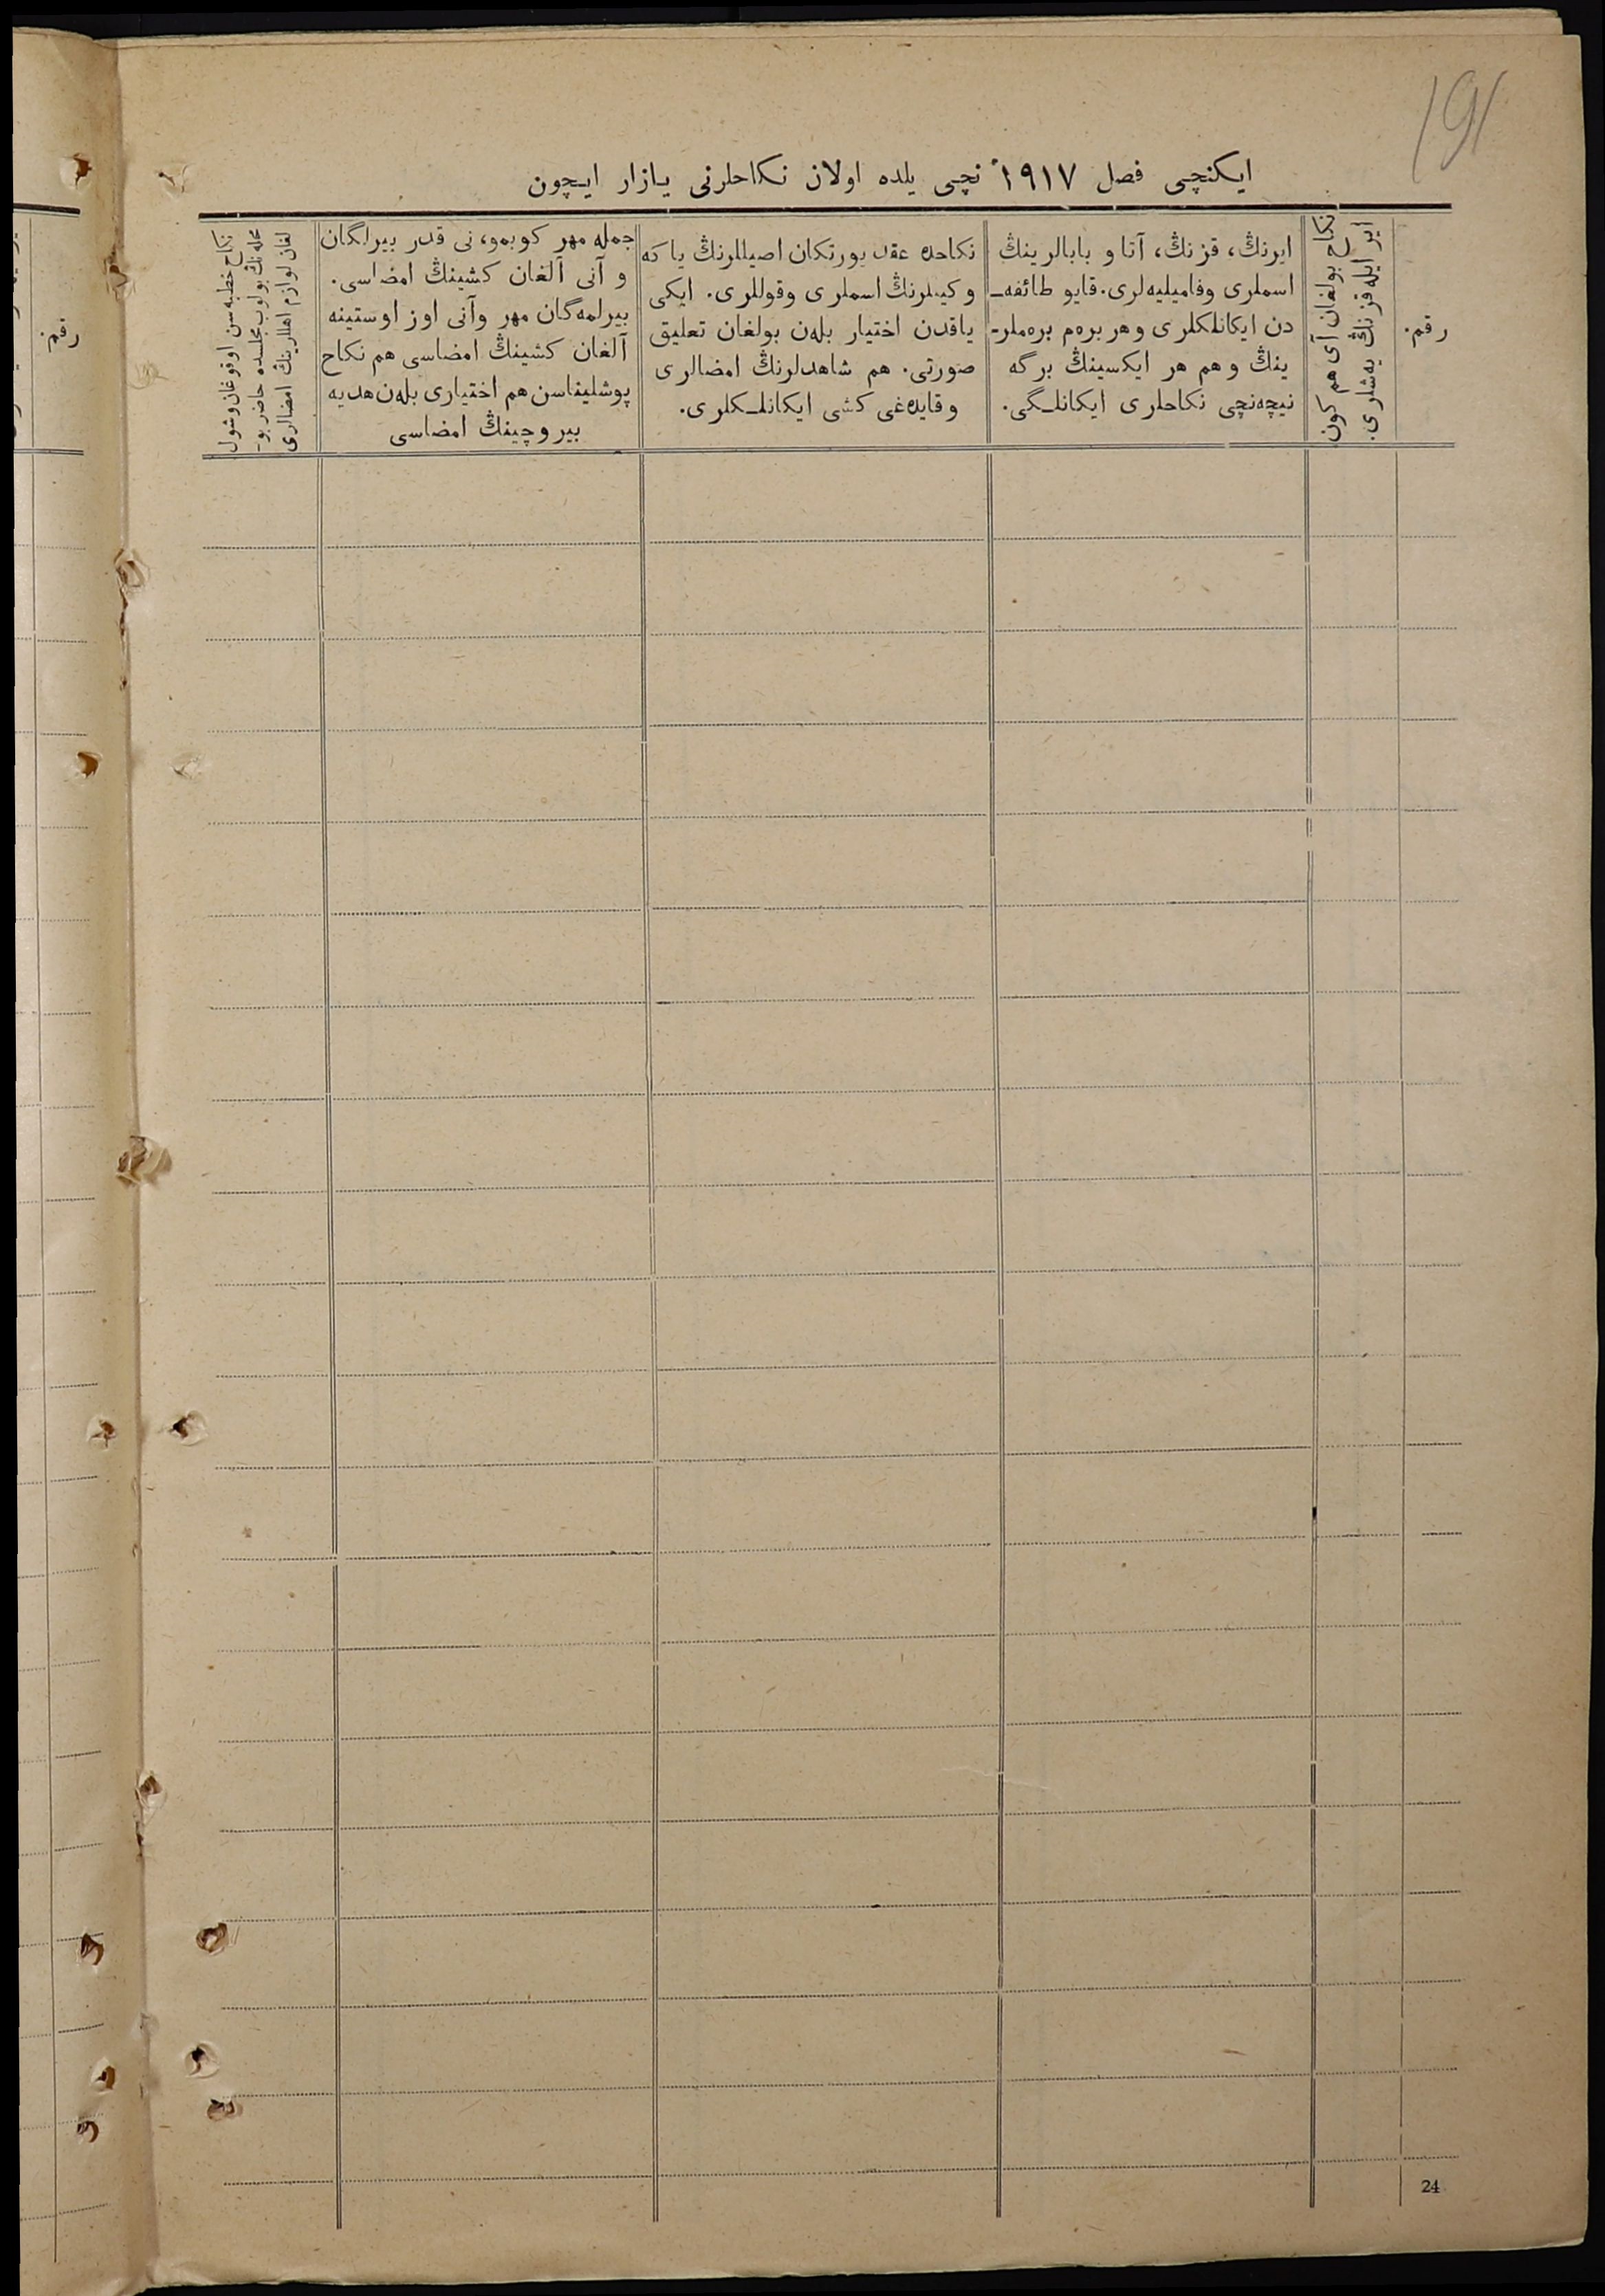 191
ایکنچی فصل ۱۹۱۷ نچی یلده اولان نکاحلرنی یازار ایچون
رقم.
نکاح بولغان آی هم کون
ایر ایله قزنڭ یه‌شلری.
ایرنڭ، قزنڭ، آتا و بابالرینڭ
اسملری وفامیلیه‌لری. قایو طائفه‌ـ
دن ایکانلکلری و هر بره‌م بره‌ملرـ
ینڭ و هم هر ایکسینڭ برگه
نیچه‌نچی نکاحلری ایکانلـگی.
نکاحده عقد یورتکان اصیللرنڭ یا که
وکیللرنڭ اسملری وقوللری. ایکی
یاقدن اختیار بله‌ن بولغان تعلیق
صورتی. هم شاهدلرنڭ امضالری
وقایده‌غی کشی ایکانلـکلری.
جمله مهر کوبمو، نی قدر بیرلگان
و آنی آلغان کشینڭ امضاسی.
بیرلمه‌گان مهر وآنی اوز اوستینه
آلغان کشینڭ امضاسی هم نکاح
پوشلیناسن هم اختیاری بله‌ن هدیه
بیروچینڭ امضاسی
نکاح خطبه‌سن اوقوغان وشول
محله‌نڭ بولوب مجلسده حاضر بوـ
لغان لوازم اهللرینڭ امضالری
رقم.
24